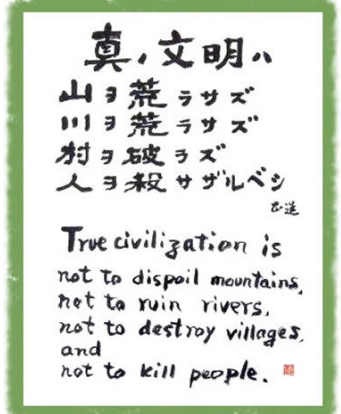 真ノ文明ハ
山ヲ荒ラサズ
川ヲ荒ラサズ
村ヲ破ラズ
人ヲ殺サザルベシ
正造
True civilization is
not to dispoil mountains,
not to ruin rivers,
not to destroy villages,
and
not to kill people.